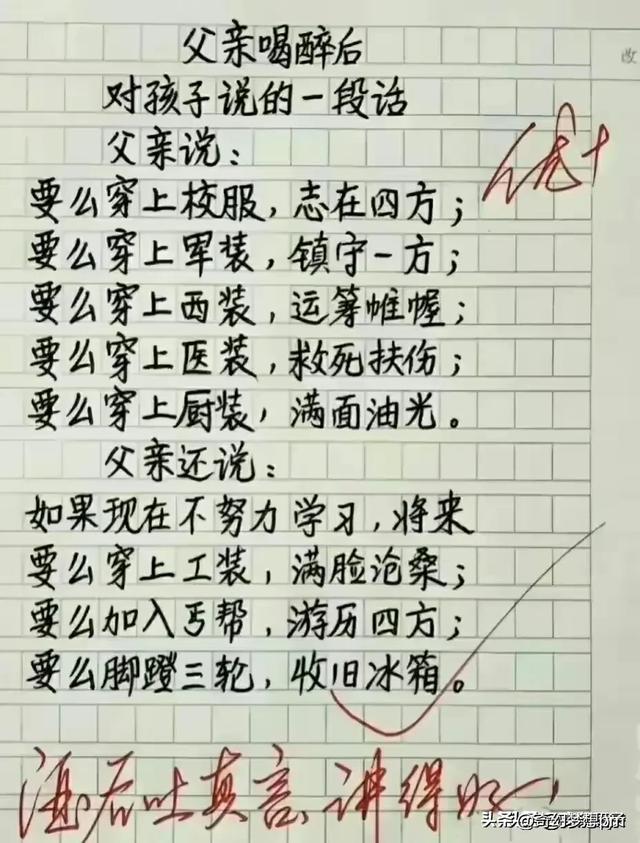 父亲喝醉后
对孩子说的一段话
父亲说：
优+
要么穿上校服，志在四方；
要么穿上军装，镇守一方；
要么穿上西装，运筹帷幄；
要么穿上医装，救死扶伤；
要么穿上厨装，满面油光。
父亲还说：
如果现在不努力学习，将来
要么穿上工装，满脸沧桑；
要么加入丐帮，游历四方；
要么脚蹬三轮，收旧冰箱。
酒后吐真言，讲得好！